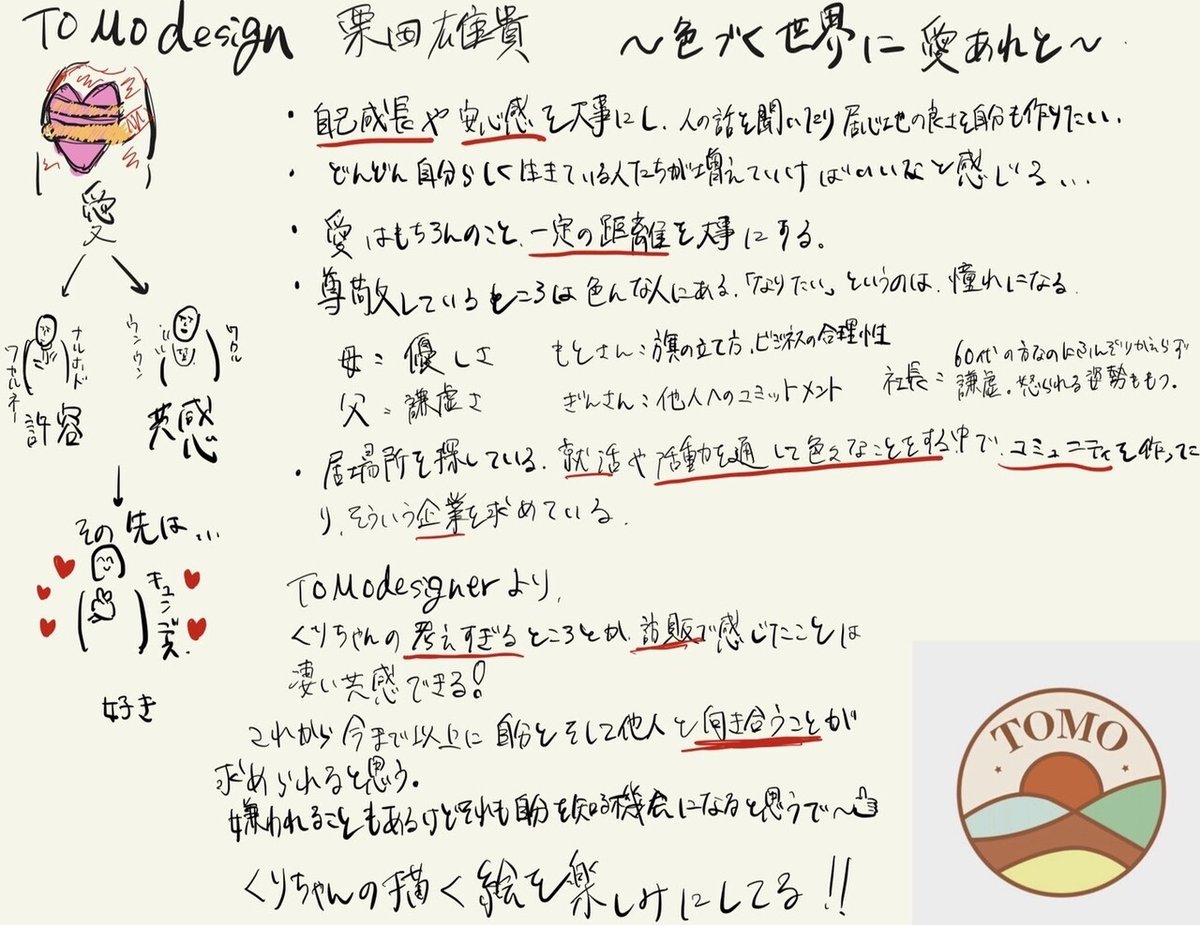 TOMOdesign 栗田雄貴 〜色づく世界に愛あれと〜
・自己成長や安心感を大事にし、人の話を聞いたり居心地の良さを自分も作りたい。
・どんどん自分らしく生きている人たちが増えていけばいいなと感じる...
・愛はもちろんのこと、一定の距離を大事にする。
・尊敬しているところは色んな人にある。「なりたい」というのは、憧れになる
母=優しさ
もとさん:旗の立て方、ビジネスの合理性
父=謙虚さ
ぎんさん:他人へのコミットメント
社長=60代の方なのにふんぞりかえらず
謙虚。怒られる姿勢ももつ。
・居場所を探している。就活や活動を通して色々なことをする中で、コミュニティを作った
り、そういう企業を求めている。
愛
ワカルネー
ナルホド
許容
ウンウン
ワカル
共感
その先は...
キュンです
好き
TOMOdesignerより、
くりちゃんの考えすぎるところとか、訪販で感じたことは
凄い共感できる!
これから今まで以上に自分とそして他人と向き合うことが
求められると思う。
嫌われることもあるけどそれも自分を知る機会になると思うで〜
くりちゃんの描く絵を楽しみにしてる!!
TOMO